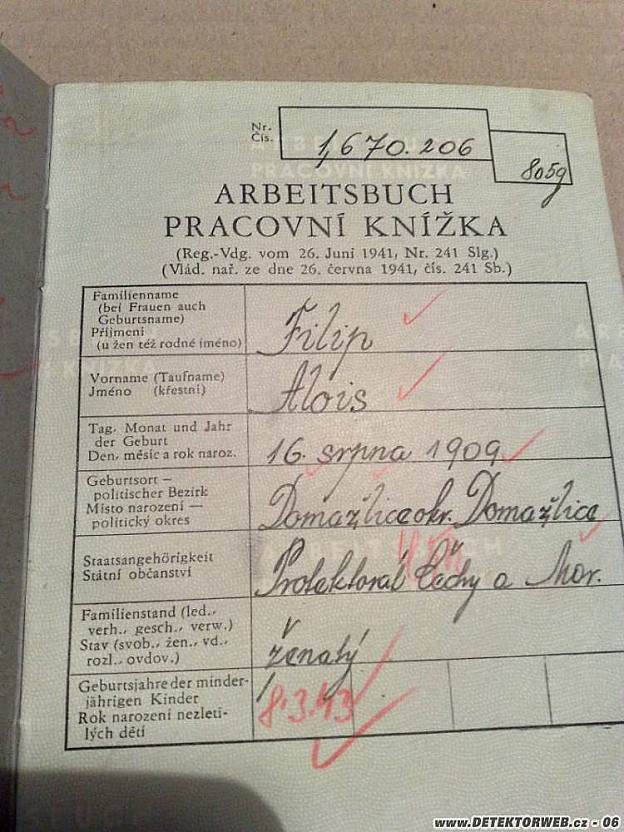 Nr.
Čís.
1,670.206
8059
ARBEITSBUCH
PRACOVNÍ KNÍŽKA
(Reg.-Vdg. vom 26. Juni 1941, Nr. 241 Slg.)
(Vlád. nař. ze dne 26. června 1941, čís. 241 Sb.)
Familienname
(bei Frauen auch
Geburtsname)
Příjmení
(u žen též rodné jméno)
Filip
Vorname (Taufname)
Jméno (křestní)
Alois
Tag, Monat und Jahr
der Geburt
Den, měsíc a rok naroz.
16. srpna 1909
Geburtsort —
politischer Bezirk
Místo narození —
politický okres
Domažlice okr. Domažlice
Staatsangehörigkeit
Státní občanství
Protektorát Čechy a Mor.
Familienstand (led.,
verh., gesch., verw.)
Stav (svob., žen., vd.,
rozl., ovdov.)
ženatý
Geburtsjahre der minder-
jährigen Kinder
Rok narození nezleti-
lých dětí
8.3.43
www.DETEKTORWEB.cz - 06